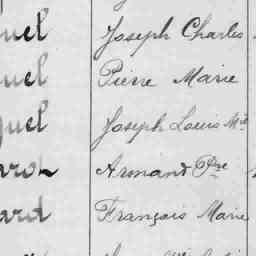 uel Joseph Charles
uel Pierre Marie
uel Joseph Louis Mie
Armand Pre
ard François Marie